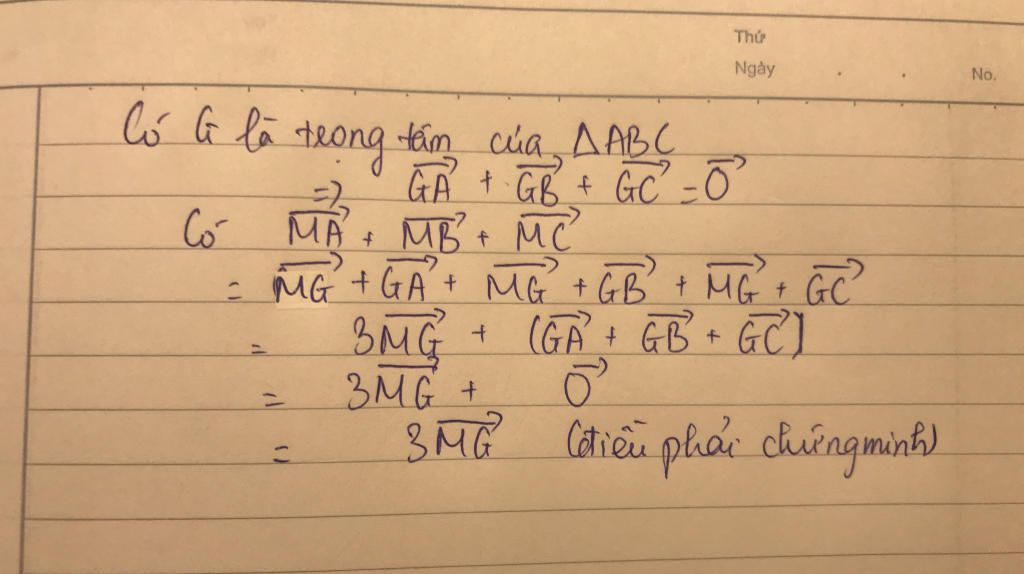 Thứ
Ngày . . No.
Có G là trọng tâm của ΔABC
=> $\overrightarrow{GA} + \overrightarrow{GB} + \overrightarrow{GC} = \overrightarrow{O}$
Có $\overrightarrow{MA} + \overrightarrow{MB} + \overrightarrow{MC}$
= $\overrightarrow{MG} + \overrightarrow{GA} + \overrightarrow{MG} + \overrightarrow{GB} + \overrightarrow{MG} + \overrightarrow{GC}$
= $3\overrightarrow{MG} + (\overrightarrow{GA} + \overrightarrow{GB} + \overrightarrow{GC})$
= $3\overrightarrow{MG} + \overrightarrow{O}$
= $3\overrightarrow{MG}$ (điều phải chứng minh)